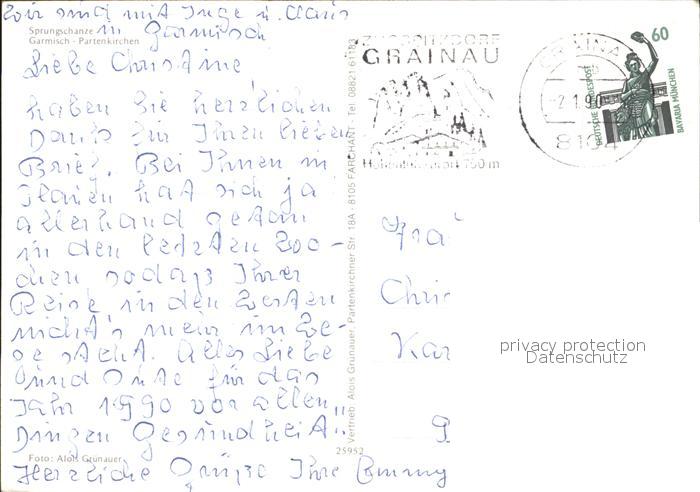 Wir sind mit Inge u. Claus
in Garmisch
Sprungschanze
Garmisch - Partenkirchen
Liebe Christine
haben Sie herzlichen
Dank für Ihren lieben
Brief. Bei Ihnen in
Plauen hat sich ja
allerhand getan
in den letzten Wo-
chen sodass Ihrer
Reise in den Westen
nichts mehr im We-
ge steht. Alles Liebe
und Gute für das
Jahr 1990 vor allen
Dingen Gesundheit!!
Foto: Alois Grünauer
Herzliche Grüße Ihre Emmy
Vertrieb: Alois Grünauer, Partenkirchner Str. 18A · 8105 FARCHANT · Tel. 08821 61183
25952
ZUGSPITZDORF
GRAINAU
Höhenluftkurort 750 m
GRAINAU
-2.1.90
8104
60
DEUTSCHE BUNDESPOST
BAVARIA MÜNCHEN
Frau
Chri
Kar
9
privacy protection
Datenschutz